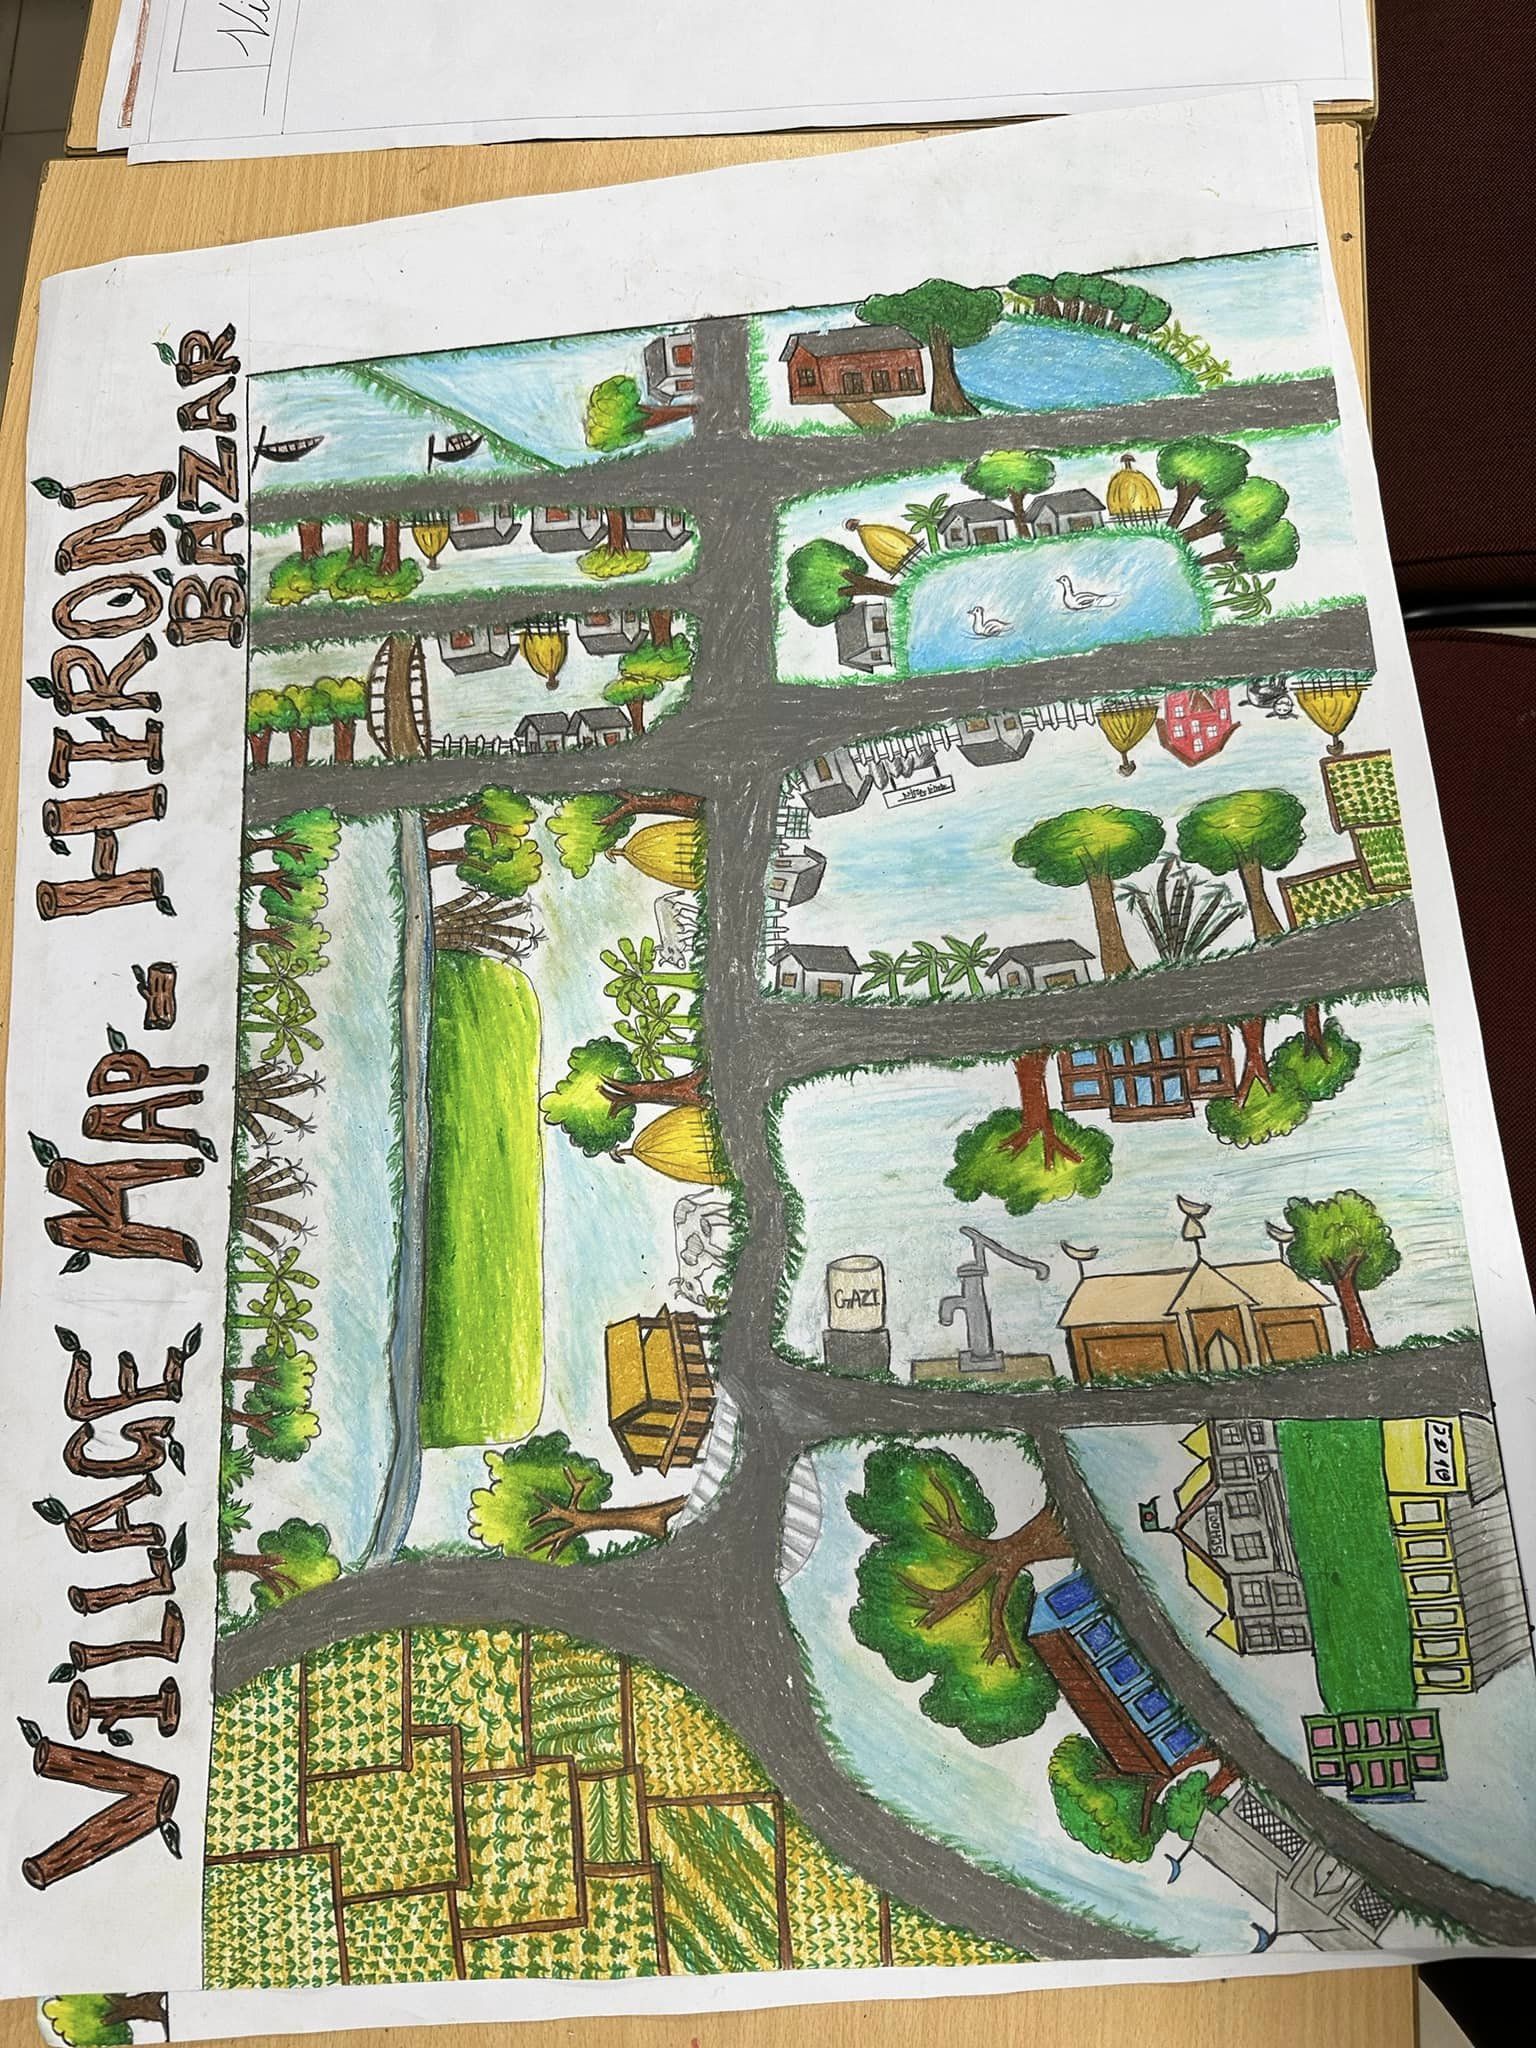 Vi
VILLAGE MAP- HIRON
BAZAR
GAZI
SCHOOL